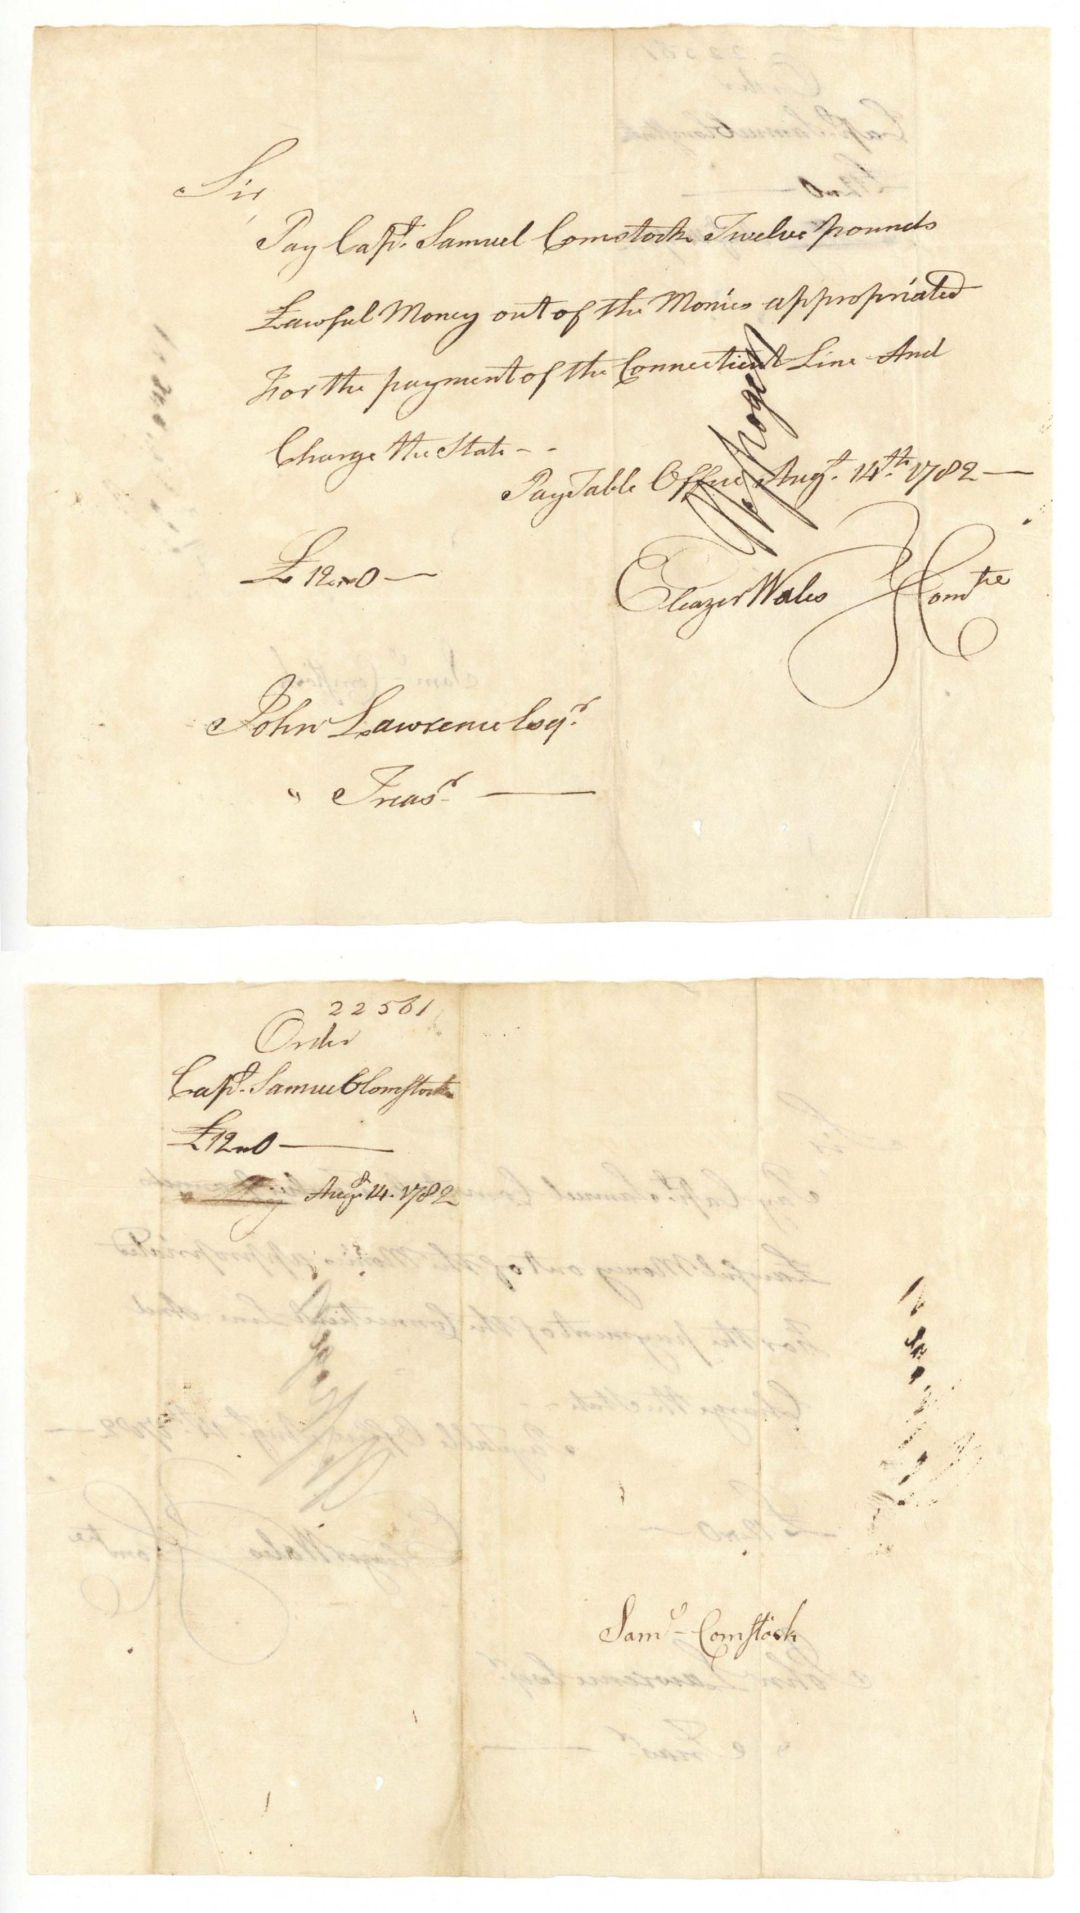 Sir
Pay Capt. Samuel Comstock Twelve pounds
Lawful Money out of the Monies appropriated
For the payment of the Connecticut Line And
Charge the State - -
Pay Table Office Augt. 14th. 1782 —
£ 12 „ 0 —
Eleazer Wales } Comtee
John Lawrence Esqr.
" Treasr. —
22561
Order
Capt. Samuel Comstock
£12 „ 0 —
Augt. 14. 1782
Saml Comstock